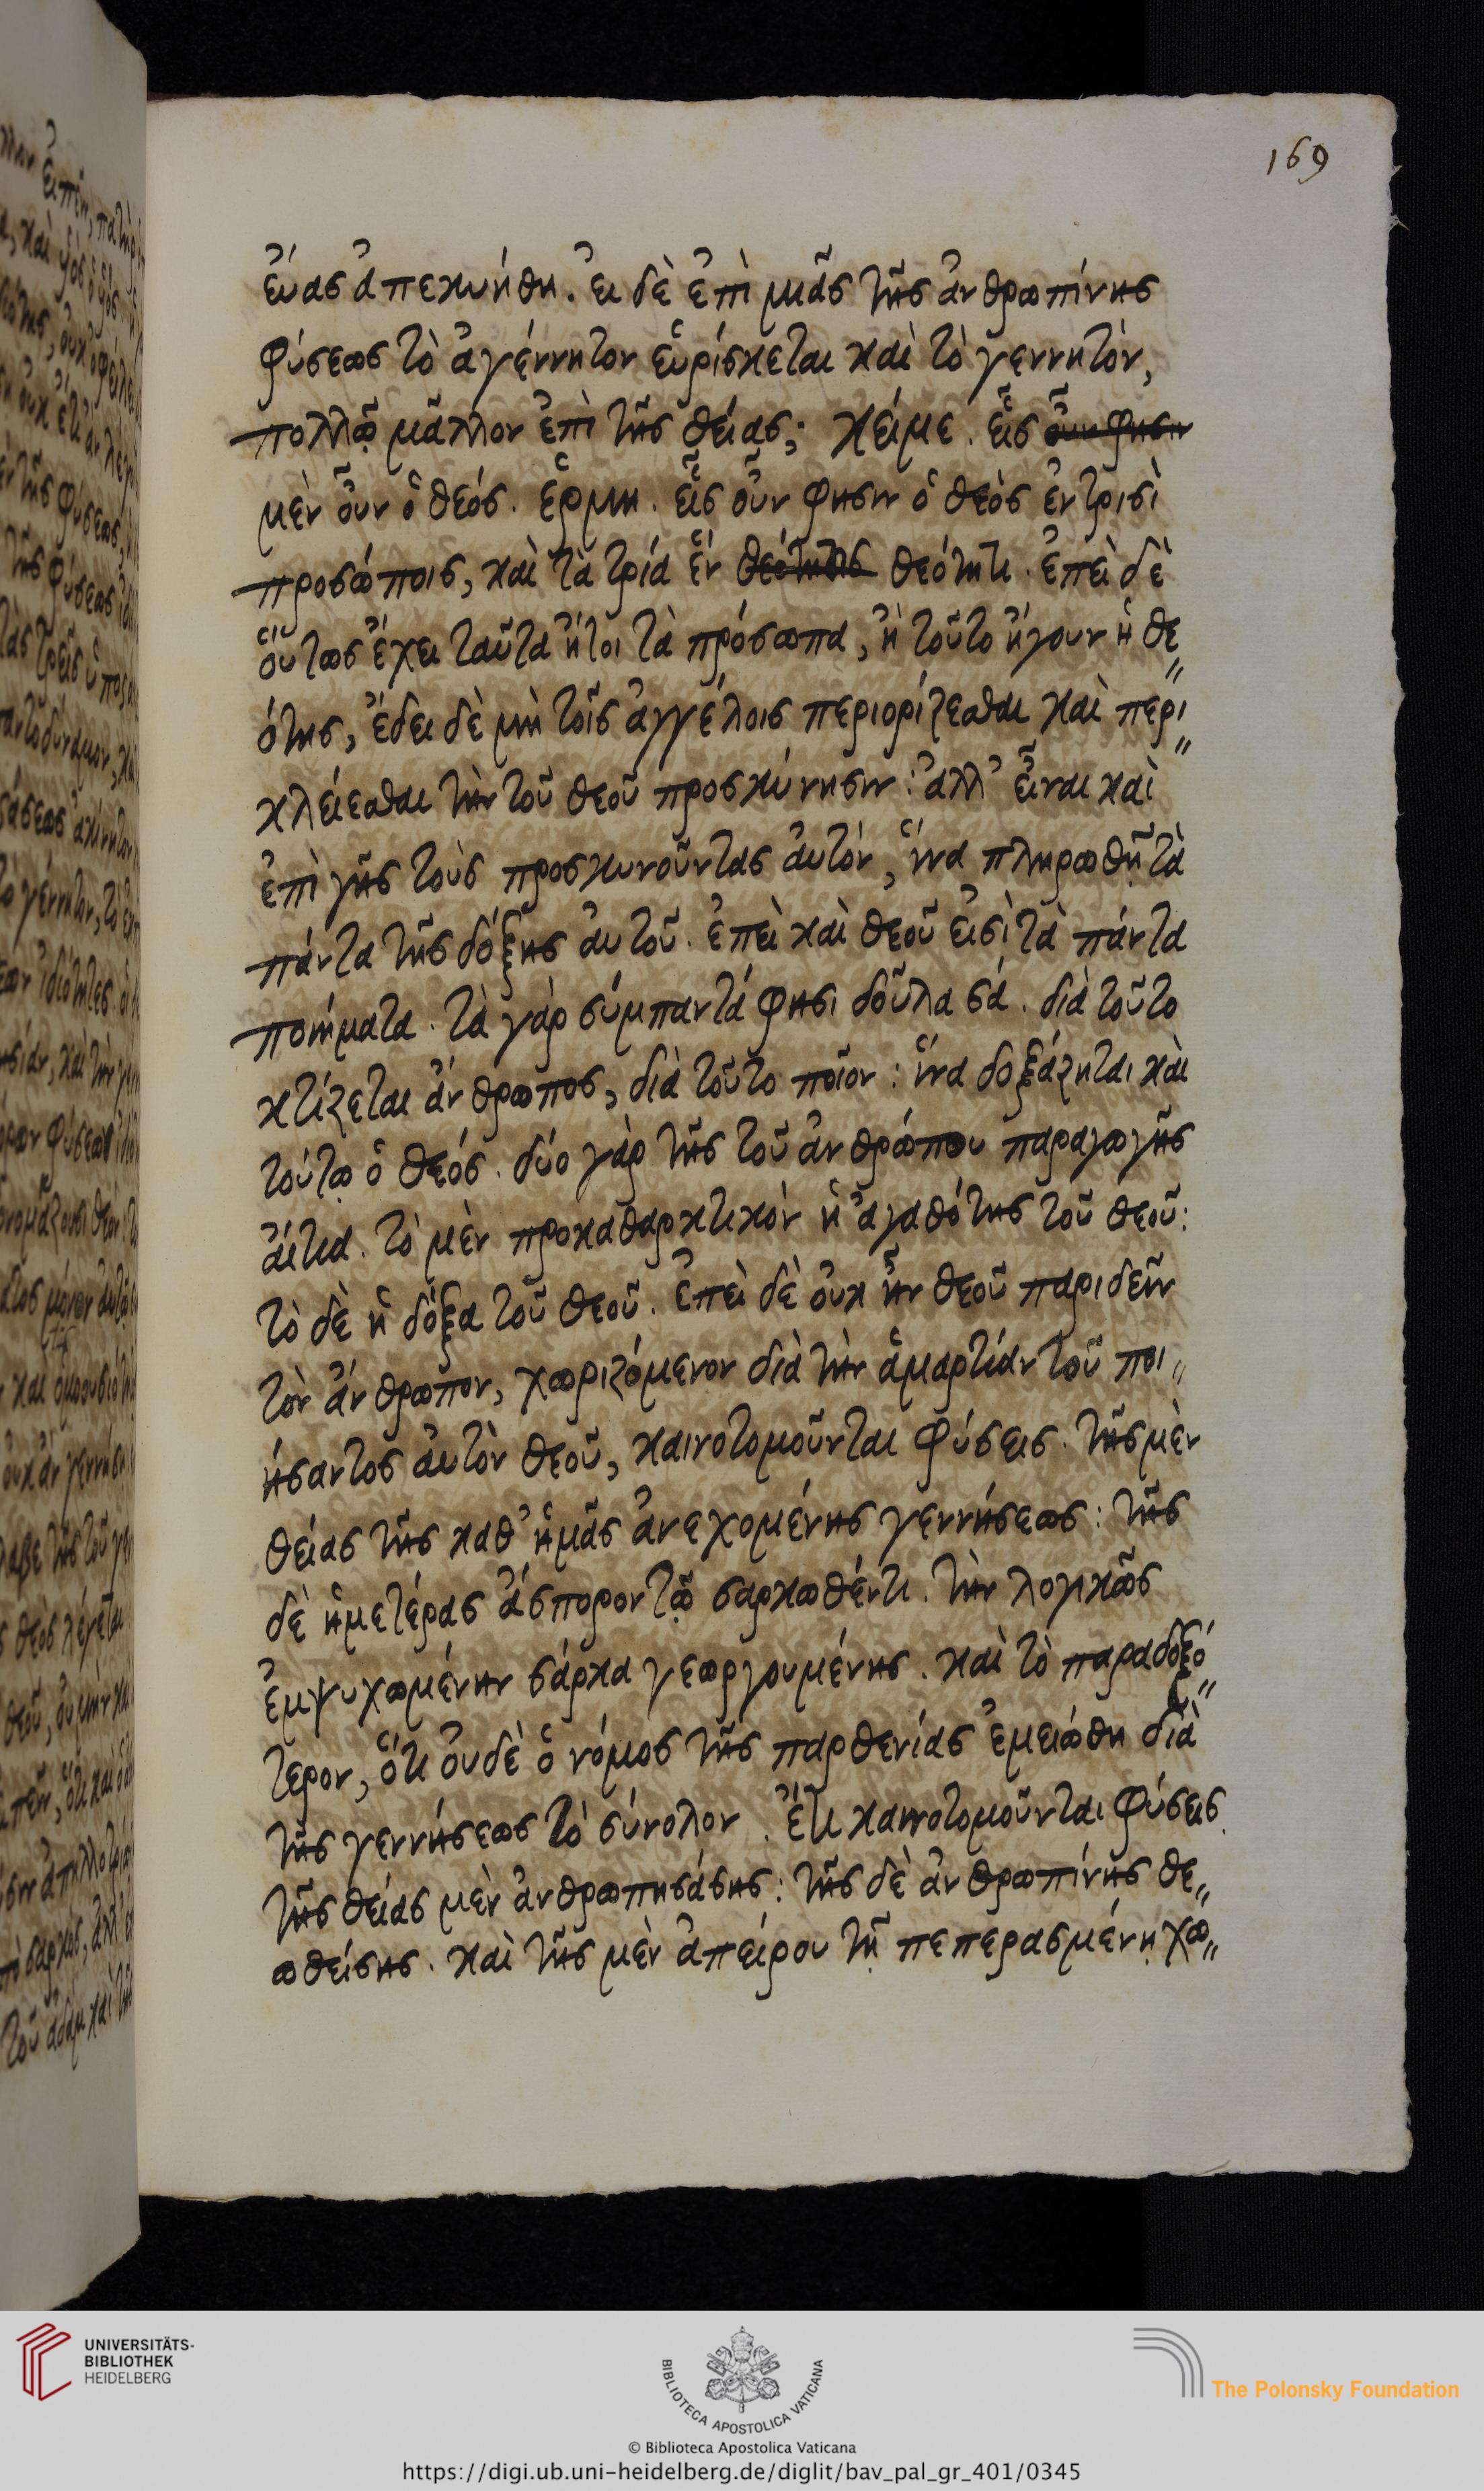 169
εὔας ἀπεκυήθη. εἰ δὲ ἐπὶ μιᾶς τῆς ἀνθρωπίνης
φύσεως τὸ ἀγέννητον εὑρίσκεται καὶ τὸ γεννητὸν,
πολλῷ μᾶλλον ἐπὶ τῆς θείας; κείμε. εἷς οὖν φησιν
μὲν οὖν ὁ θεός. ἑρμη. εἷς οὖν φησιν ὁ θεὸς ἐν τρισὶ
προσώποις, καὶ τὰ τρία ἓν θεότητος θεότητι. ἐπεὶ δὲ
οὕτως ἔχει ταῦτα ἤτοι τὰ πρόσωπα, ἢ τοῦτο ἤγουν ἡ θε〃
ότης, ἔδει δὲ μὴ τοῖς ἀγγέλοις περιορίζεσθαι καὶ περι〃
κλείεσθαι τὴν τοῦ θεοῦ προσκύνησιν: ἀλλ' εἶναι καὶ
ἐπὶ γῆς τοὺς προσκυνοῦντας αὐτὸν, ἵνα πληρωθῇ τὰ
πάντα τῆς δόξης αὐτοῦ. ἐπεὶ καὶ θεοῦ εἰσὶ τὰ πάντα
ποιήματα. τὰ γὰρ σύμπαντά φησι δοῦλα σά. διὰ τοῦτο
κτίζεται ἄνθρωπος, διὰ τοῦτο ποῖον: ἵνα δοξάζηται καὶ
τούτῳ ὁ θεός. δύο γὰρ τῆς τοῦ ἀνθρώπου παραγωγῆς
αἴτια. τὸ μὲν προκαθαρκτικὸν ἡ ἀγαθότης τοῦ θεοῦ:
τὸ δὲ ἡ δόξα τοῦ θεοῦ. ἐπεὶ δὲ οὐκ ἦν θεοῦ παριδεῖν
τὸν ἄνθρωπον, χωριζόμενον διὰ τὴν ἁμαρτίαν τοῦ ποι〃
ήσαντος αὐτὸν θεοῦ, καινοτομοῦνται φύσεις. τῆς μὲν
θείας τῆς καθ' ἡμᾶς ἀνεχομένης γεννήσεως: τῆς
δὲ ἡμετέρας ἄσπορον τῷ σαρκωθέντι. τὴν λογικῶς
ἐμψυχωμένην σάρκα γεωργουμένης. καὶ τὸ παραδοξό〃
τερον, ὅτι οὐδὲ ὁ νόμος τῆς παρθενίας ἐμειώθη διὰ
τῆς γεννήσεως τὸ σύνολον. Ἔτι καινοτομοῦνται φύσεις.
τῆς θείας μὲν ἀνθρωπησάσης: τῆς δὲ ἀνθρωπίνης θε〃
ωθείσης. καὶ τῆς μὲν ἀπείρου τῇ πεπερασμένῃ χω〃
UNIVERSITÄTS-
BIBLIOTHEK
HEIDELBERG
BIBLIOTECA APOSTOLICA VATICANA
The Polonsky Foundation
© Biblioteca Apostolica Vaticana
https://digi.ub.uni-heidelberg.de/diglit/bav_pal_gr_401/0345